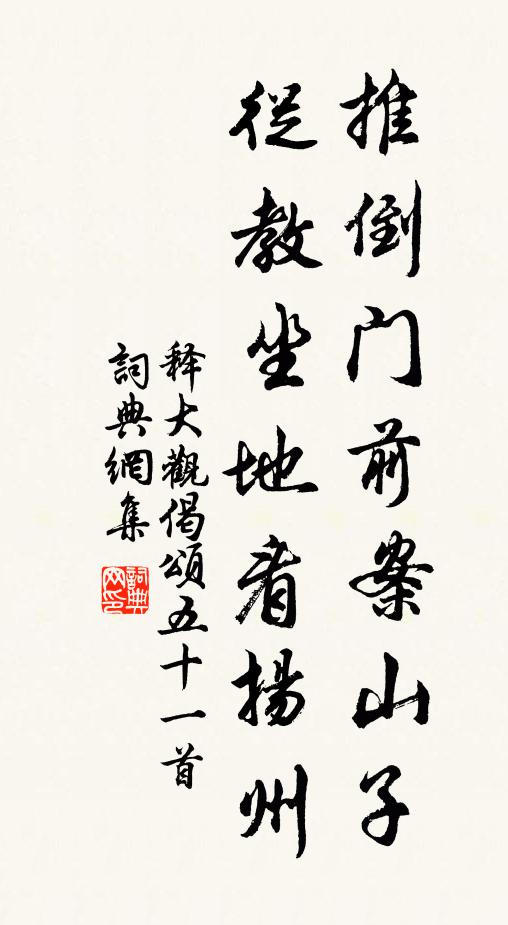 推倒门前案山子
從教坐地看揚州
释大觀偈頌五十一首
詞典網集
詞典网印